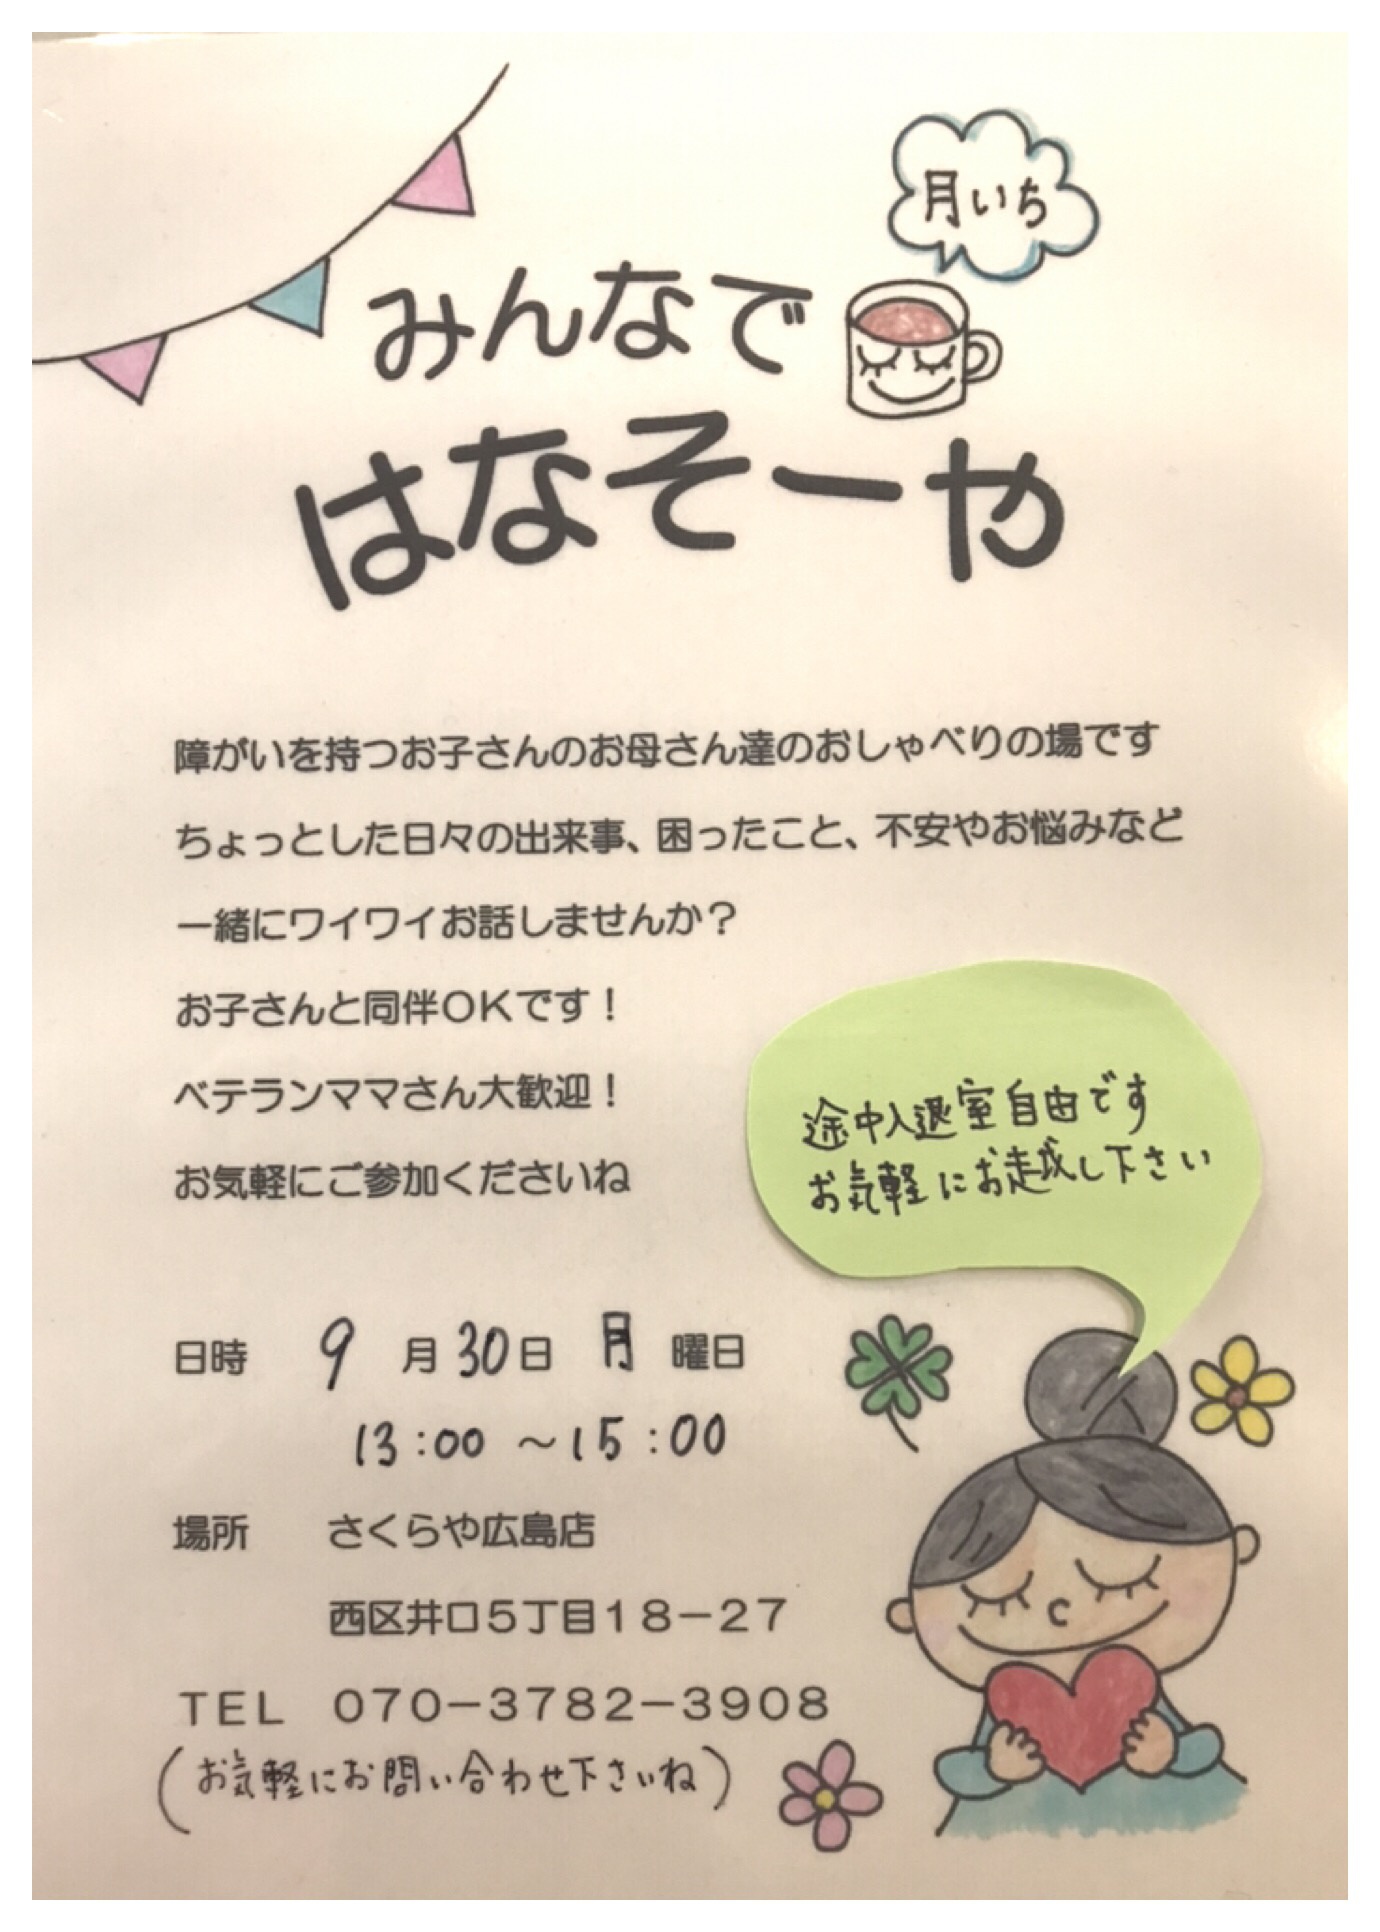 月いち
みんなで
はなそーや
障がいを持つお子さんのお母さん達のおしゃべりの場です
ちょっとした日々の出来事、困ったこと、不安やお悩みなど
一緒にワイワイお話しませんか？
お子さんと同伴ＯＫです！
ベテランママさん大歓迎！
お気軽にご参加くださいね
途中入退室自由です
お気軽にお越し下さい
日時 9月30日 月曜日
13:00 〜15:00
場所 さくらや広島店
西区井口５丁目１８－２７
ＴＥＬ ０７０－３７８２－３９０８
(お気軽にお問い合わせ下さいね)